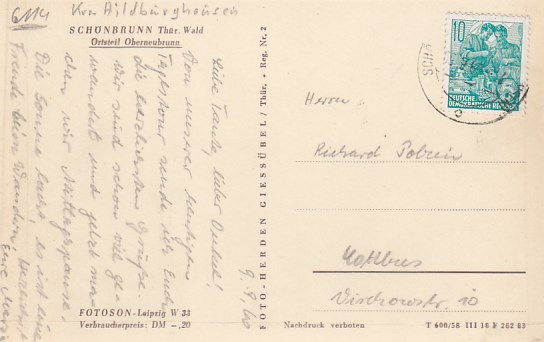 6114
Krs. Hildburghausen
SCHÖNBRUNN Thür. Wald
Ortsteil Oberneubrunn
9. 9. 60
Liebe Tante, lieber Onkel!
Von unserer heutigen
Tagestour sende ich Euch
die herzlichsten Grüße.
Wir sind schon viel ge-
wandert und jetzt ma-
chen wir Mittagspause.
Die Sonne lacht, es ist eine
Freude beim Wandern. Herzlichst
Eure
FOTOSON-Leipzig W 33
Verbraucherpreis: DM -,20
FOTO-HERDEN GIESSÜBEL/Thür. • Reg. Nr. 2
10
DEUTSCHE
DEMOKRATISCHE REPUBLIK
SCHÖ
Herrn
Richard Polzin
Cottbus
Virchowstr. 10
Nachdruck verboten
T 600/58 III 18 F 282 83